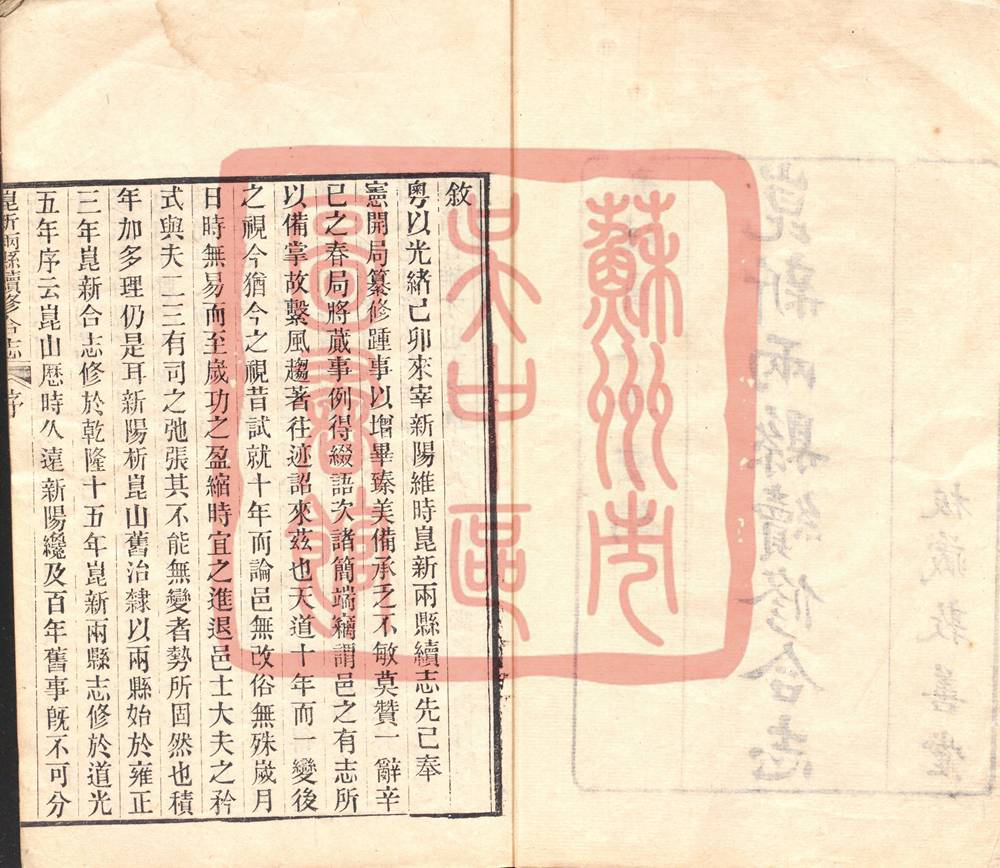 敘
粵以光緒己卯來宰新陽維時崑新兩縣續志先已奉
憲開局纂修踵事以增畢臻美備承乏不敏莫贊一辭辛
巳之春局將蕆事例得綴語次諸簡端竊謂邑之有志所
以備掌故繫風趨著往迹詔來茲也天道十年而一變後
之視今猶今之視昔試就十年而論邑無改俗無殊歲月
日時無易而至歲功之盈縮時宜之進退邑士大夫之矜
式與夫一二三有司之弛張其不能無變者勢所固然也積
年加多理仍是耳新陽析崑山舊治隸以兩縣始於雍正
三年崑新合志修於乾隆十五年崑新兩縣志修於道光
五年序云崑山歷時久遠新陽纔及百年舊事旣不可分
崑新兩縣續修合志 序
蘇州市
吴中區
圖書館
崑新兩縣續修合志
板藏敦善堂